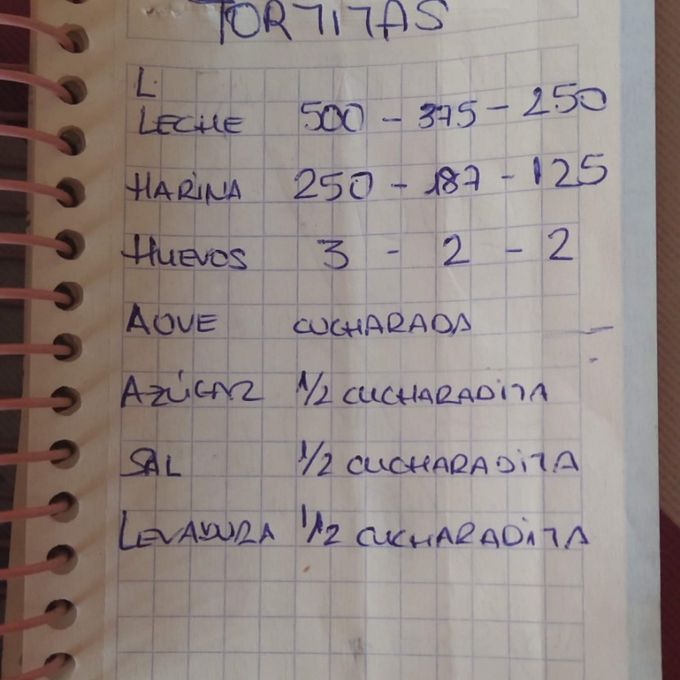 TORTITAS
L.
LECHE 500 - 375 - 250
HARINA 250 - 187 - 125
HUEVOS 3 - 2 - 2
AOVE CUCHARADA
AZÚCAR 1/2 CUCHARADITA
SAL 1/2 CUCHARADITA
LEVADURA 1/2 CUCHARADITA